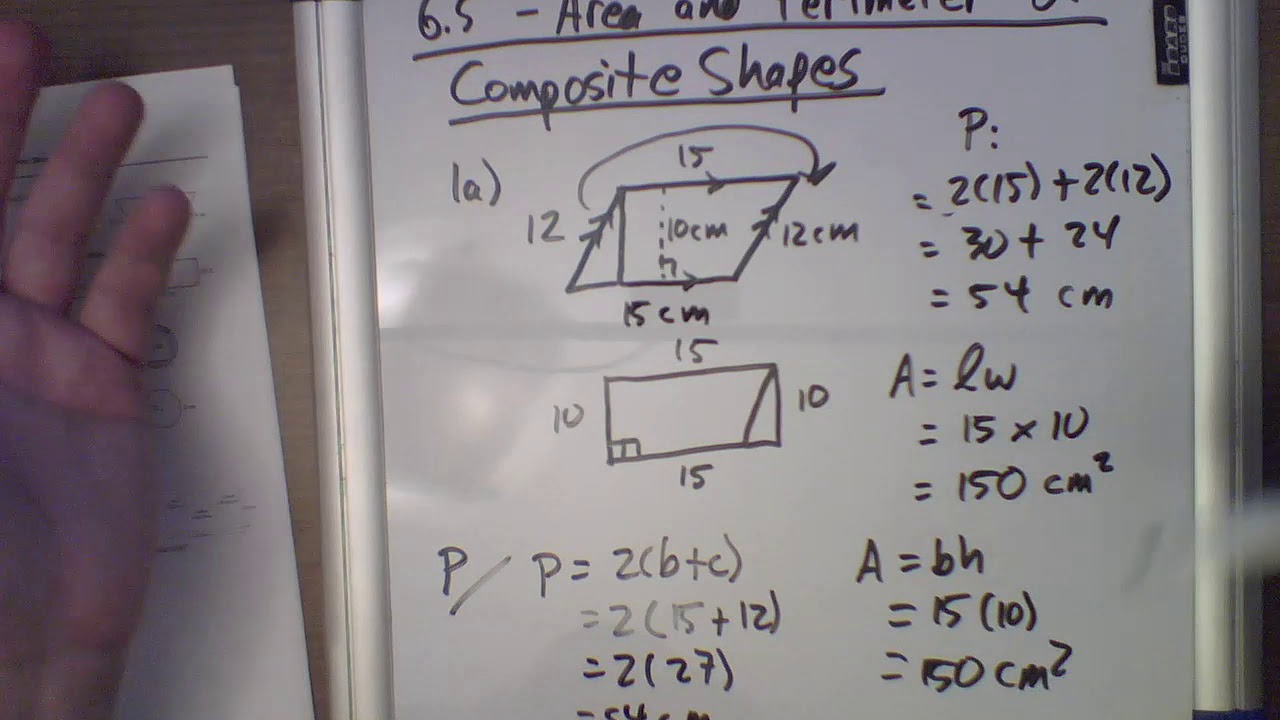 6.5 - Area and Perimeter
Composite Shapes
1a)
15
12
10cm
12cm
15cm
P:
= 2(15) + 2(12)
= 30 + 24
= 54 cm
15
10
10
15
A = lw
= 15 × 10
= 150 cm²
P/ P = 2(b+c)
= 2(15+12)
= 2(27)
= 54 cm
A = bh
= 15(10)
= 150 cm²